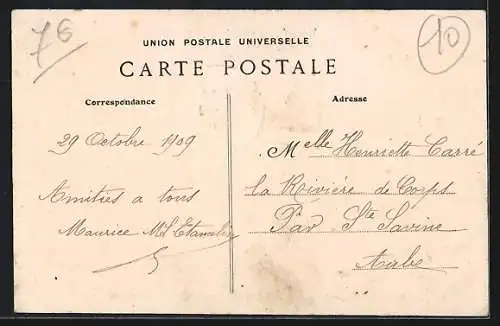 76
10
UNION POSTALE UNIVERSELLE
CARTE POSTALE
Correspondance
Adresse
29 Octobre 1909
Amitiés a tous
Maurice
Melle Henriette Carré
la Rivière de Corps
Par Ste Savine
Aube